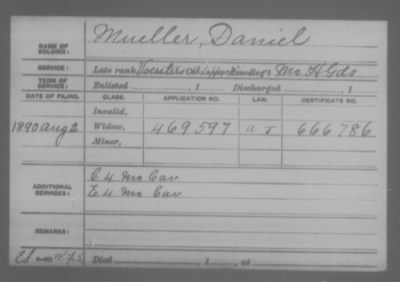 NAME OF SOLDIER: Mueller, Daniel
SERVICE: Late rank, Mo H Gds
TERM OF SERVICE: Enlisted , 1 Discharged , 1
DATE OF FILING. CLASS. APPLICATION NO. LAW. CERTIFICATE NO.
Invalid,
1890 Aug 2 Widow, 469597 666786
Minor,
C 4 Mo Cav
ADDITIONAL SERVICES: E 4 Mo Cav
REMARKS:
Died , 1 , at